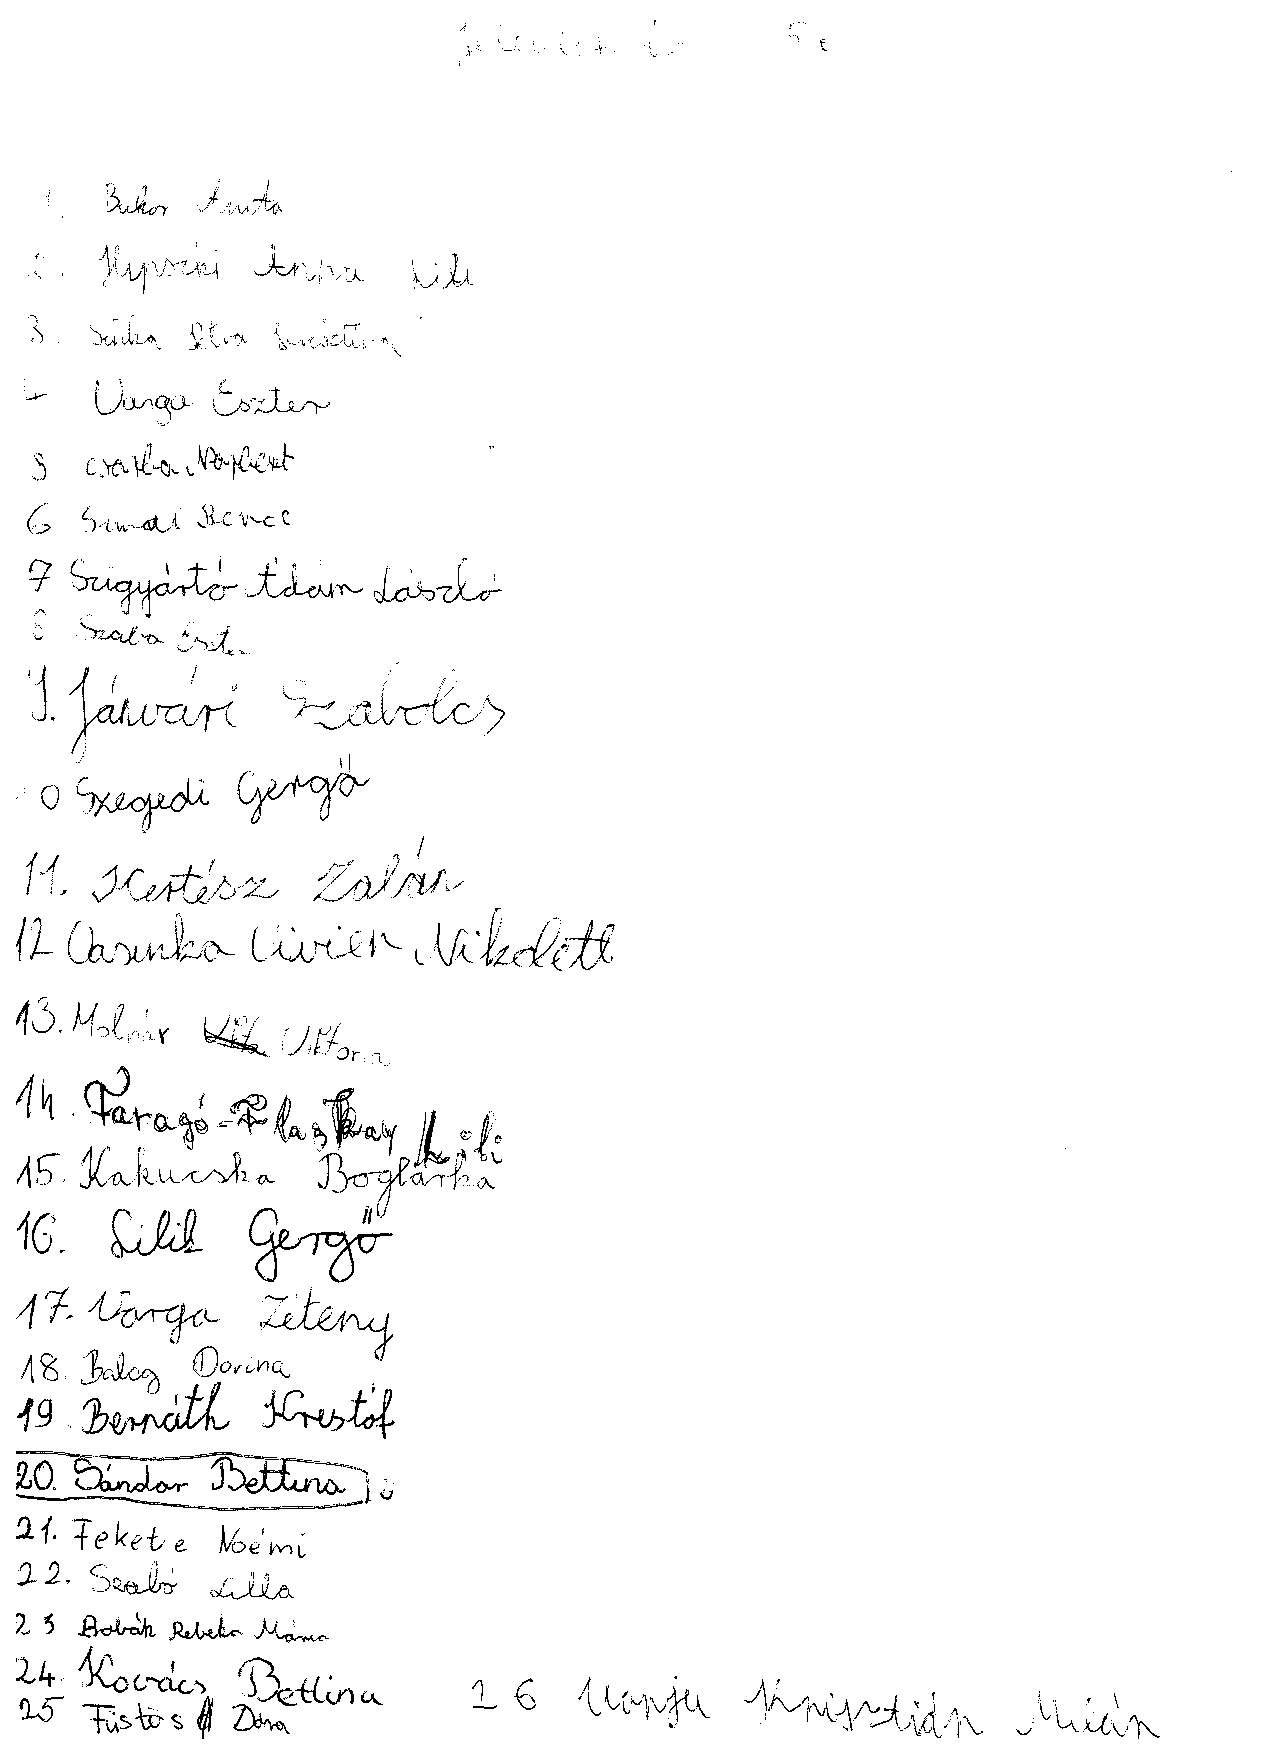 1. Bukor Anita
2. Anna Lili
3.
4 Varga Eszter
5 Csatba Norbert
6 Bence
7 Szigyártó Ádám László
8 Szabó Eszter
9. Járvári Szabolcs
10 Szegedi Gergő
11. Kertész Zalán
12 Vasinka Vivien Nikolett
13. Molnár Viktória
14. Faragó- Lili
15. Kakucska Boglárka
16. Lilik Gergő
17. Varga Zétény
18. Balog Dorina
19. Bernáth Kristóf
20. Sándor Bettina
21. Fekete Noémi
22. Szabó Lilla
23 Rebeka Mária
24. Kovács Bettina
25 Füstös Dóra
26 Krisztián Milán